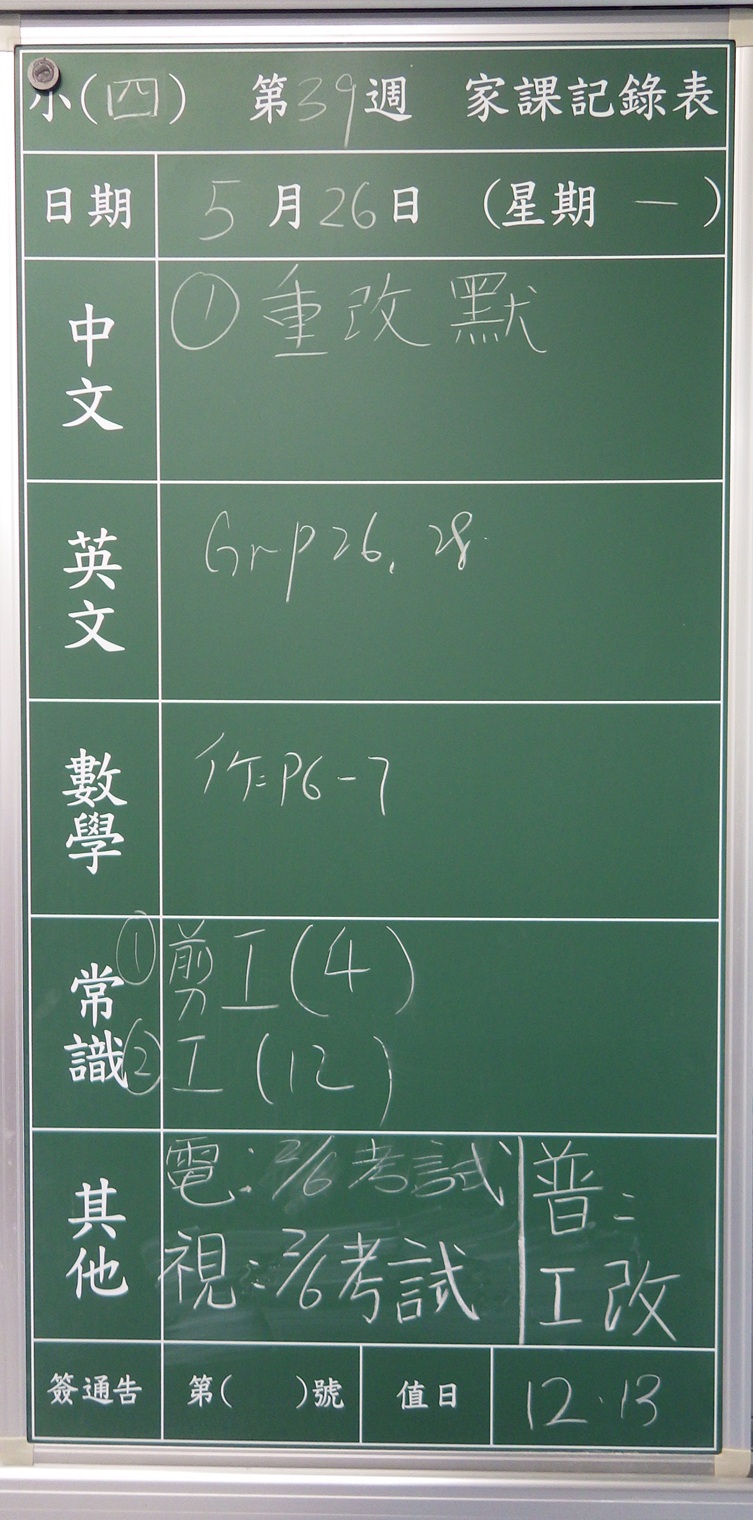 小(四) 第39週 家課記錄表
日期 5月26日 (星期一)
中文 ①重改默
英文 Gr p26, 28.
數學 作:P6-7
常識 ①剪工(4)
②工(12)
其他 電:2/6考試
視:2/6考試
普:
工改
簽通告 第( )號 值日 12.13